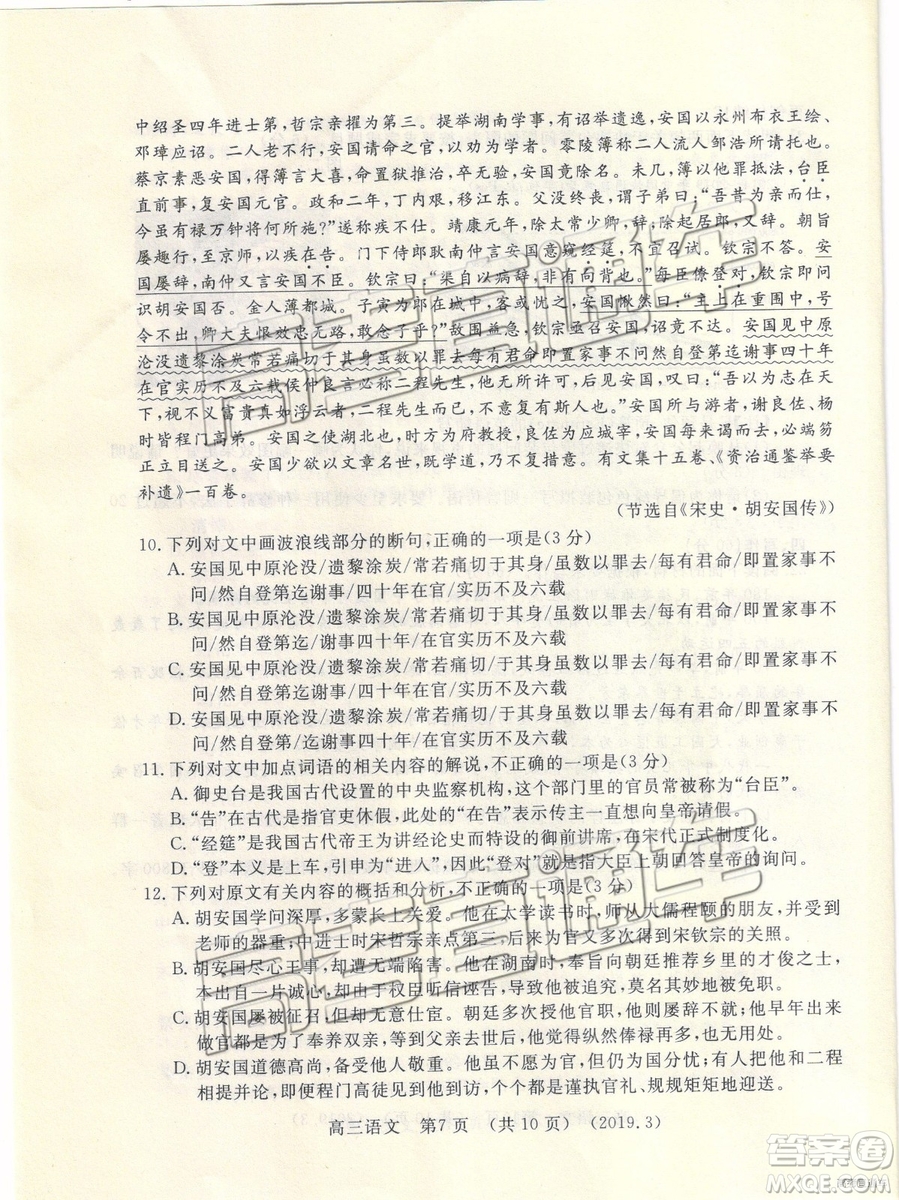 中绍圣四年进士第，哲宗亲擢为第三。提举湖南学事，有诏举遗逸，安国以永州布衣王绘、
邓璋应诏。二人老不行，安国请命之官，以劝为学者。零陵簿称二人流人邹浩所请托也。
蔡京素恶安国，得簿言大喜，命置狱推治，卒无验，安国竟除名。未几，簿以他罪抵法，台臣
直前事，复安国元官。政和二年，丁内艰，移江东。父没终丧，谓子弟曰：“吾昔为亲而仕，
今虽有禄万钟将何所施？”遂称疾不仕。靖康元年，除太常少卿，辞，除起居郎，又辞。朝旨
屡趣行，至京师，以疾在告。门下侍郎耿南仲言安国意窥经筵，不宜召试。钦宗不答。安
国屡辞，南仲又言安国不臣。钦宗曰：“渠自以病辞，非有向背也。”每臣僚登对，钦宗即问
识胡安国否。金人薄都城。子寅为郎在城中，客或忧之，安国愀然曰：“主上在重围中，号
令不出，卿大夫恨效忠无路，敢念子乎？”敌围益急，钦宗亟召安国，诏竟不达。安国见中原
沦没遗黎涂炭常若痛切于其身虽数以罪去每有君命即置家事不问然自登第迄谢事四十年
在官实历不及六载侯仲良言必称二程先生，他无所许可，后见安国，叹曰：“吾以为志在天
下，视不义富贵真如浮云者，二程先生而已，不意复有斯人也。”安国所与游者，谢良佐、杨
时皆程门高弟。安国之使湖北也，时方为府教授，良佐为应城宰，安国每来谒而去，必端笏
正立目送之。安国少欲以文章名世，既学道，乃不复措意。有文集十五卷、《资治通鉴举要
补遗》一百卷。
（节选自《宋史·胡安国传》）
10. 下列对文中画波浪线部分的断句，正确的一项是（3 分）
A. 安国见中原沦没/遗黎涂炭/常若痛切/于其身/虽数以罪去/每有君命/即置家事不
问/然自登第迄谢事/四十年在官/实历不及六载
B. 安国见中原沦没/遗黎涂炭/常若痛切于其身/虽数以罪去/每有君命/即置家事不
问/然自登第迄谢事四十年/在官实历不及六载
C. 安国见中原沦没/遗黎涂炭/常若痛切/于其身虽数以罪去/每有君命/即置家事不
问/然自登第/迄谢事四十年在官/实历不及六载
D. 安国见中原沦没/遗黎涂炭/常若痛切于其身虽数以罪去/每有君命/即置家事不
问/然自登第/迄谢事四十年/在官实历不及六载
11. 下列对文中加点词语的相关内容的解说，不正确的一项是（3 分）
A. 御史台是我国古代设置的中央监察机构，这个部门里的官员常被称为“台臣”。
B. “告”在古代指官吏休假，此处的“在告”表示传主一直想向皇帝请假。
C. “经筵”是我国古代帝王为讲经论史而特设的御前讲席，在宋代正式制度化。
D. “登”本义是上车，引申为“进入”，因此“登对”就是指大臣上朝回答皇帝的询问。
12. 下列对原文有关内容的概括和分析，不正确的一项是（3 分）
A. 胡安国学问深厚，多蒙长上关爱。他在太学读书时，师从大儒程颐的朋友，并受到
老师的器重；中进士时宋哲宗亲点第三；后来为官又多次得到宋钦宗的关照。
B. 胡安国尽心王事，却遭无端陷害。他在湖南时，奉旨向朝廷推荐乡里的才俊之士，
本出自一片诚心，却由于权臣听信诬告，导致他被追究，莫名其妙地被免职。
C. 胡安国屡被征召，但却无意仕宦。朝廷多次授他官职，他却屡屡辞不就；早年出来
做官都是为了奉养双亲，等到父亲去世后，他觉得纵然俸禄再多，也无用处。
D. 胡安国道德高尚，备受他人敬重。他虽不愿为官，但仍为国分忧；有人把他和二程
相提并论，即便程门高徒见到他到访，个个都是谨执官礼、规规矩矩地迎送。
高三语文　第7页　（共10页）　（2019.3）
高考直通车
高考直通车
答案圈
MXQE.COM